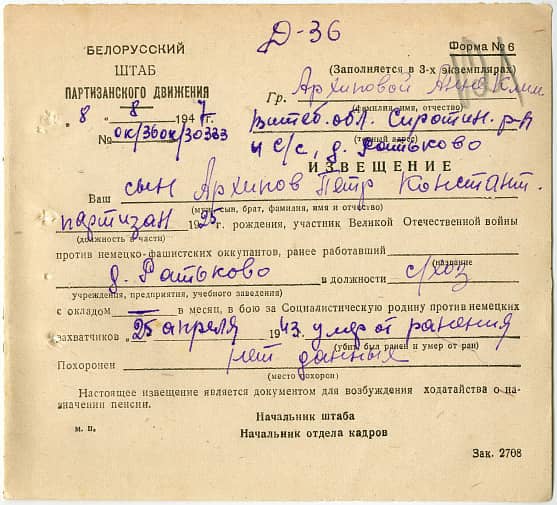 Д-36
БЕЛОРУССКИЙ
ШТАБ
ПАРТИЗАНСКОГО ДВИЖЕНИЯ
„ 8 “ 8 1947 г.
№ ок/36ок/30383
Форма № 6
(Заполняется в 3-х экземплярах)
Гр. Архиповой Анне
(фамилия, имя, отчество)
Витеб. обл. Сиротин. р-н
(точный адрес)
с/с, д. Ратьково
ИЗВЕЩЕНИЕ
Ваш сын Архипов Петр Констант.
(муж, сын, брат, фамилия, имя и отчество)
партизан 1925 г. рождения, участник Великой Отечественной войны
(должность в части)
против немецко-фашистских оккупантов, ранее работавший
(название
д. Ратьково в должности с/хоз
учреждения, предприятия, учебного заведения)
с окладом — в месяц, в бою за Социалистическую родину против немецких
захватчиков „ 25 апреля 1943 г. умер от ранения
(убит, был ранен и умер от ран)
Похоронен нет данных
(место похорон)
Настоящее извещение является документом для возбуждения ходатайства о на-
значении пенсии.
Начальник штаба
м. п.
Начальник отдела кадров
Зак. 2708